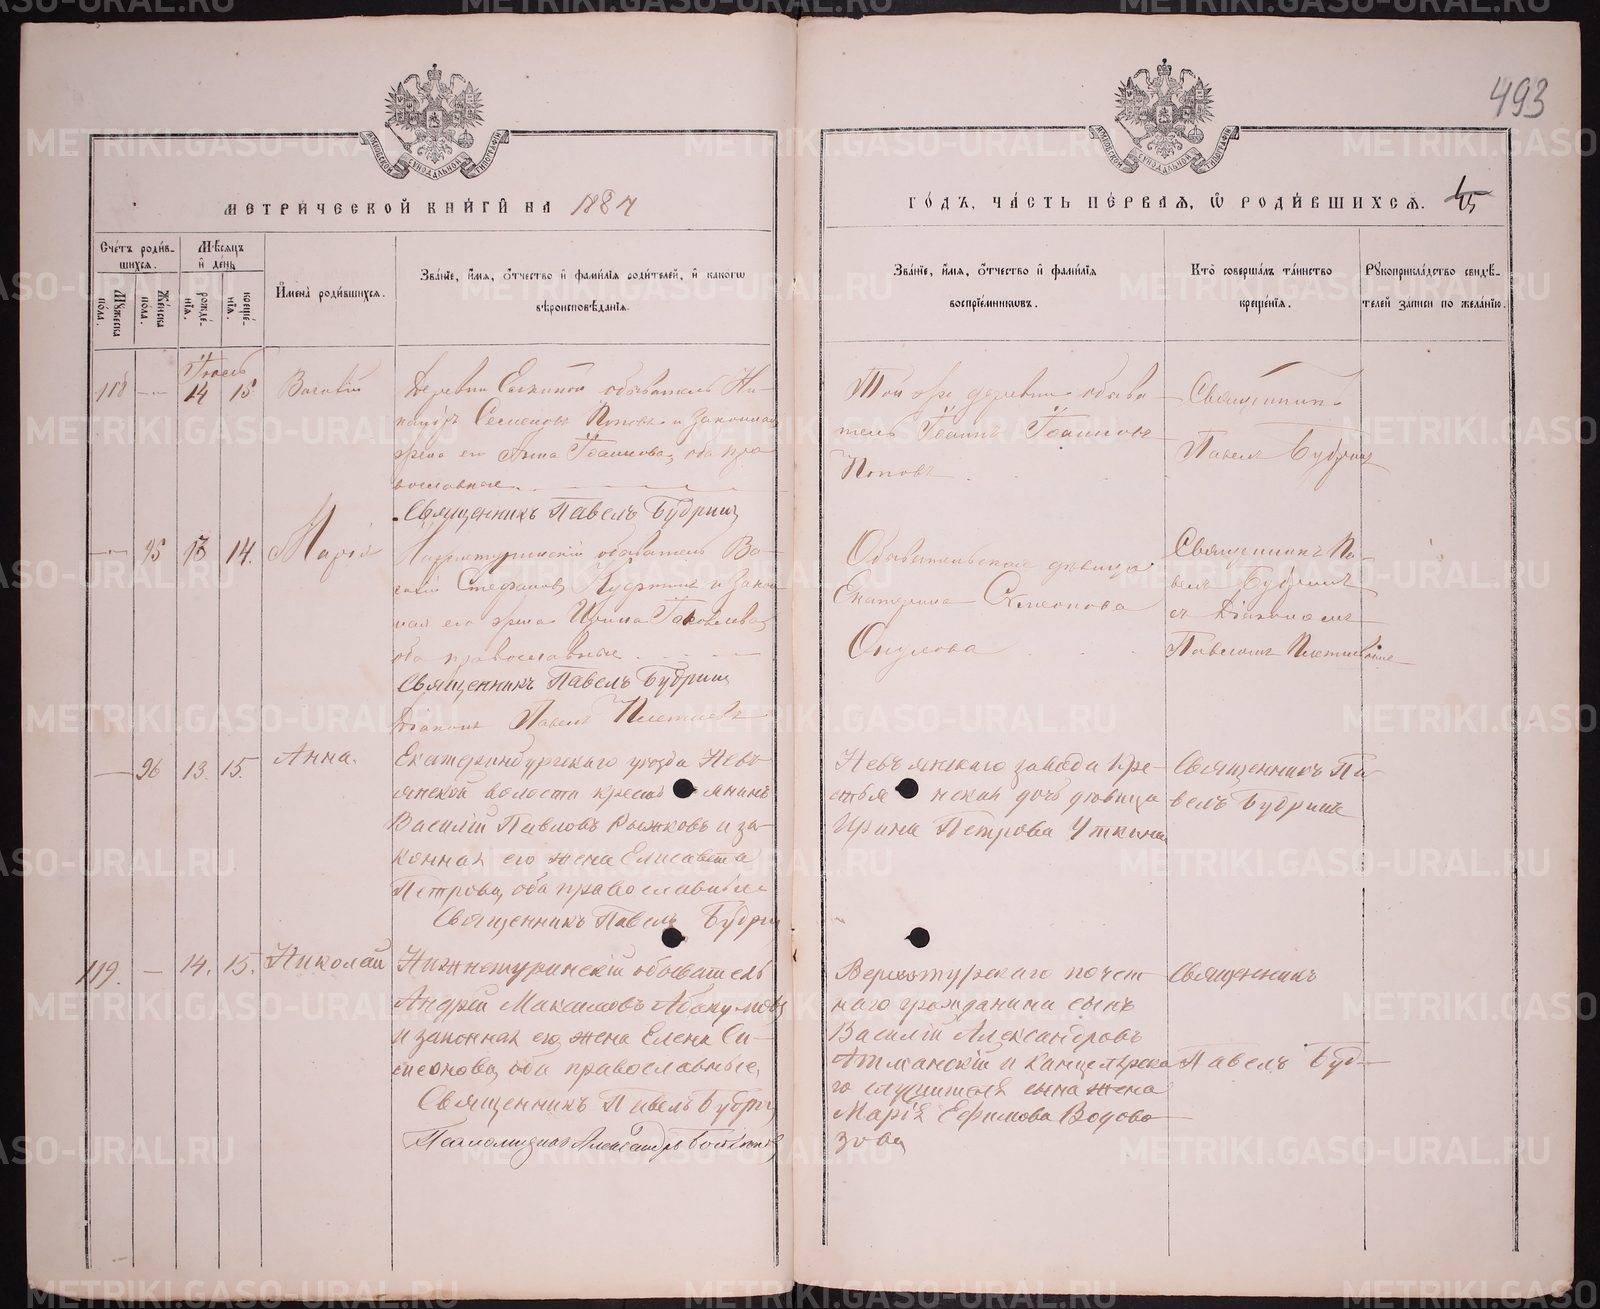 493
МЕТРИ́ЧЕСКОЙ КНИ́ГИ НА 1887
ГО́ДЪ, ЧА́СТЬ ПЕ́РВАЯ, Ѡ РОДИ́ВШИХСЯ.
45
Сче́тъ роди́в-
шихся.
Му́жеска пола.
Же́нска пола.
Мѣ́сяцъ и де́нь
рожде́-
нїя.
креще́-
нїя.
И҆мена̀ роди́вшихся.
Зва́нїе, и҆́мя, ѻ҆́тчество и҆ фами́лїя роди́телей, и҆ какогѡ
вѣроисповѣ́данїя.
Зва́нїе, и҆́мя, ѻ҆́тчество и҆ фами́лїя
воспрїе́мниковъ.
Кто̀ соверша́лъ та́инство
креще́нїя.
Рꙋкоприкла́дство свидѣ́-
телей записи по жела́нїю.
Іюль
118 — 14 15
Деревни обыватель Ни-
каноръ Семеновъ Поповъ и законная
жена его Анна Іоаннова, оба пра
вославные.
Священникъ Павелъ Будринъ
Той же деревни обыва
тель Іоаннъ Іоанновъ
Поповъ
Священникъ
Павелъ Будринъ
— 95 13 14. Марія
Нижнетуринскій обыватель Ва-
силій Стефановъ и закон
ная его жена Ирина Іаковлева,
оба православные
Священникъ Павелъ Будринъ
Діаконъ Павелъ
Обывательская дѣвица
Екатерина Симеонова
Священникъ Па-
велъ Будринъ
съ Діакономъ
Павломъ
— 96 13. 15. Анна.
Екатеринбургскаго уѣзда Невь
янской волости крестьянинъ
Василій Павловъ Рыжковъ и за-
конная его жена Елисавета
Петрова, оба православные
Священникъ Павелъ Будрин
Невьянскаго завода кре-
стьянская дочь дѣвица
Ирина Петрова Уткина
Священникъ Па
велъ Будринъ
119. — 14. 15. Николай
Нижнетуринскій обыватель
Андрей Максимовъ Абакумовъ
и законная его жена Елена Си-
меонова, оба православные,
Священникъ Павелъ Будрин
Псаломщикъ Александръ
Верхотурскаго почет
наго гражданина сынъ
Василій Александровъ
Атманскій и канцелярска
го служителя сына жена
Марія Ефимова Водово
зова
Священникъ
Павелъ Буд-
METRIKI.GASO-URAL.RU